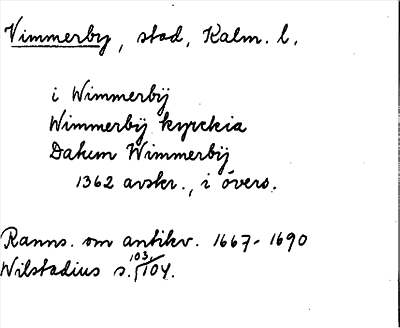 Vimmerby, stad, Kalm. l.
i Wimmerbÿ
Wimmerbÿ kyrckia
Datum Wimmerbÿ
1362 avskr., i övers.
Ranns. om antikv. 1667-1690
Wilstadius s. 103, 104.